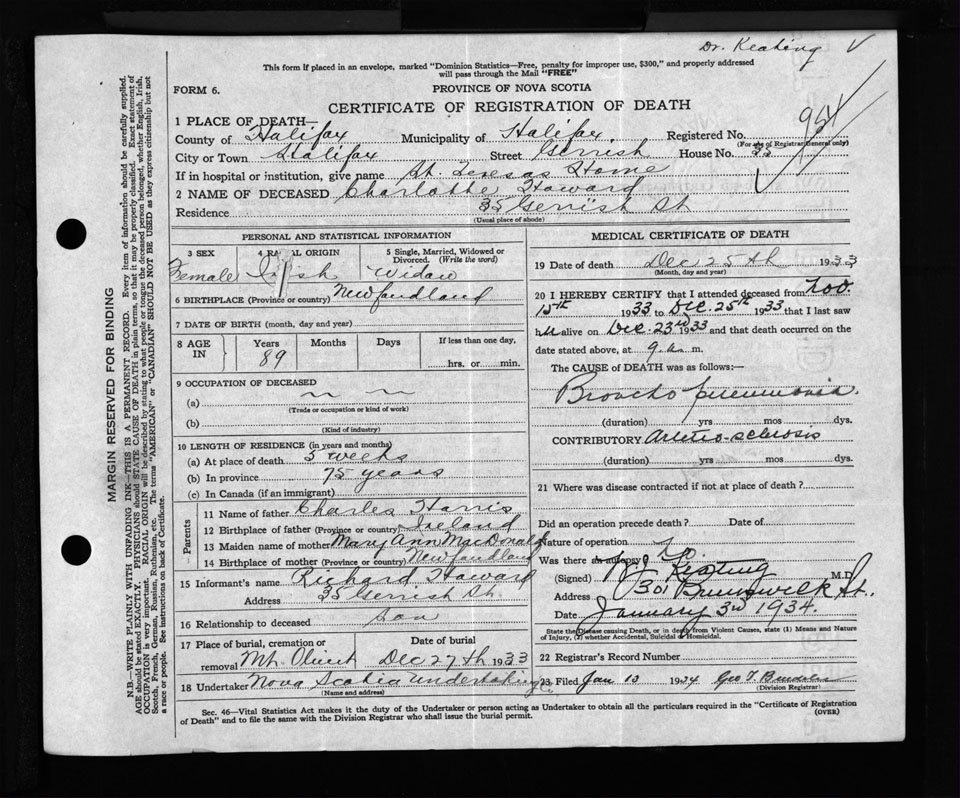 Dr. Keating V
This form if placed in an envelope, marked "Dominion Statistics—Free, penalty for improper use, $300," and properly addressed
will pass through the Mail "FREE"
FORM 6.
PROVINCE OF NOVA SCOTIA
CERTIFICATE OF REGISTRATION OF DEATH
954
1 PLACE OF DEATH—
County of Halifax Municipality of Halifax Registered No.
(For use of Registrar General only)
City or Town Halifax Street Gerrish House No.
If in hospital or institution, give name St. Teresas Home
2 NAME OF DECEASED Charlotte Howard
Residence 35 Gerrish St
(Usual place of abode)
PERSONAL AND STATISTICAL INFORMATION
3 SEX 4 RACIAL ORIGIN 5 Single, Married, Widowed or Divorced. (Write the word)
Female Irish Widow
6 BIRTHPLACE (Province or country) Newfoundland
7 DATE OF BIRTH (month, day and year)
8 AGE IN Years Months Days If less than one day,
89 hrs. or min.
9 OCCUPATION OF DECEASED
(a)
(Trade or occupation or kind of work)
(b)
(Kind of industry)
10 LENGTH OF RESIDENCE (in years and months)
(a) At place of death 5 weeks
(b) In province 75 years
(c) In Canada (if an immigrant)
Parents
11 Name of father Charles Harris
12 Birthplace of father (Province or country) Ireland
13 Maiden name of mother Mary Ann MacDonald
14 Birthplace of mother (Province or country) Newfoundland
15 Informant's name Richard Howard
Address 35 Gerrish St.
16 Relationship to deceased Son
17 Place of burial, cremation or removal Mt. Olivet Date of burial Dec 27th 1933
18 Undertaker Nova Scotia Undertaking Co
(Name and address)
MEDICAL CERTIFICATE OF DEATH
19 Date of death Dec 25th 1933
(Month, day and year)
20 I HEREBY CERTIFY that I attended deceased from Nov.
15th 1933 to Dec. 25th 1933 that I last saw
her alive on Dec. 23rd 1933 and that death occurred on the
date stated above, at 9 a. m.
The CAUSE of DEATH was as follows:—
Broncho pneumonia.
(duration) yrs mos dys.
CONTRIBUTORY Arterio-sclerosis
(duration) yrs mos dys.
21 Where was disease contracted if not at place of death?
Did an operation precede death? Date of
Nature of operation
Was there an autopsy?
(Signed) Keating M.D.
Address 301 Brunswick St.,
Date January 3rd 1934.
State the Disease causing Death, or in death from Violent Causes, state (1) Means and Nature
of Injury, (2) whether Accidental, Suicidal or Homicidal.
22 Registrar's Record Number
23 Filed Jan 10 1934 Geo T.
(Division Registrar)
Sec. 46—Vital Statistics Act makes it the duty of the Undertaker or person acting as Undertaker to obtain all the particulars required in the "Certificate of Registration
of Death" and to file the same with the Division Registrar who shall issue the burial permit.
(OVER)
MARGIN RESERVED FOR BINDING
N.B.—WRITE PLAINLY WITH UNFADING INK—THIS IS A PERMANENT RECORD. Every item of information should be carefully supplied.
AGE should be stated EXACTLY. PHYSICIANS should STATE CAUSE OF DEATH in plain terms, so that it may be properly classified. Exact statement of
OCCUPATION is very important. RACIAL ORIGIN will be described by stating to what people or tongue the deceased person belonged, whether English, Irish,
Scotch, French, German, Russian, Ruthenian, etc. The terms "AMERICAN" or "CANADIAN" SHOULD NOT BE USED as they express citizenship but not
a race or people. See instructions on back of Certificate.